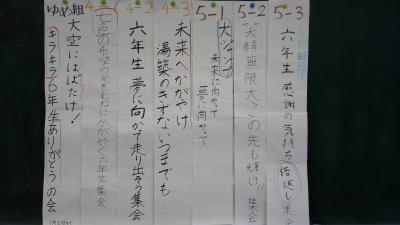 5-3
六年生 感謝の気持ち 倍返し集会
5-2
笑顔無限大、この先も輝け!! 集会
5-1
大ジャンプ
未来に向かって
夢に向かって
4-3
未来へかがやけ
湯築のきずないつまでも
4-2
六年生 夢に向かって走り出そう集会
七色の希望の光をむねにかがやく六年生集会
ゆめ組
大空にはばたけ!
キラキラ6年生ありがとうの会